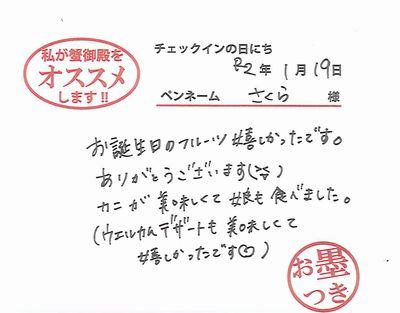 私が蟹御殿を
オススメ
します!!
チェックインの日にち
R2年 1月 19日
ペンネーム さくら 様
お誕生日のフルーツ嬉しかったです。
ありがとうございます
カニが美味しくて娘も食べました。
(ウエルカムデザートも美味しくて
嬉しかったです
お墨
つき